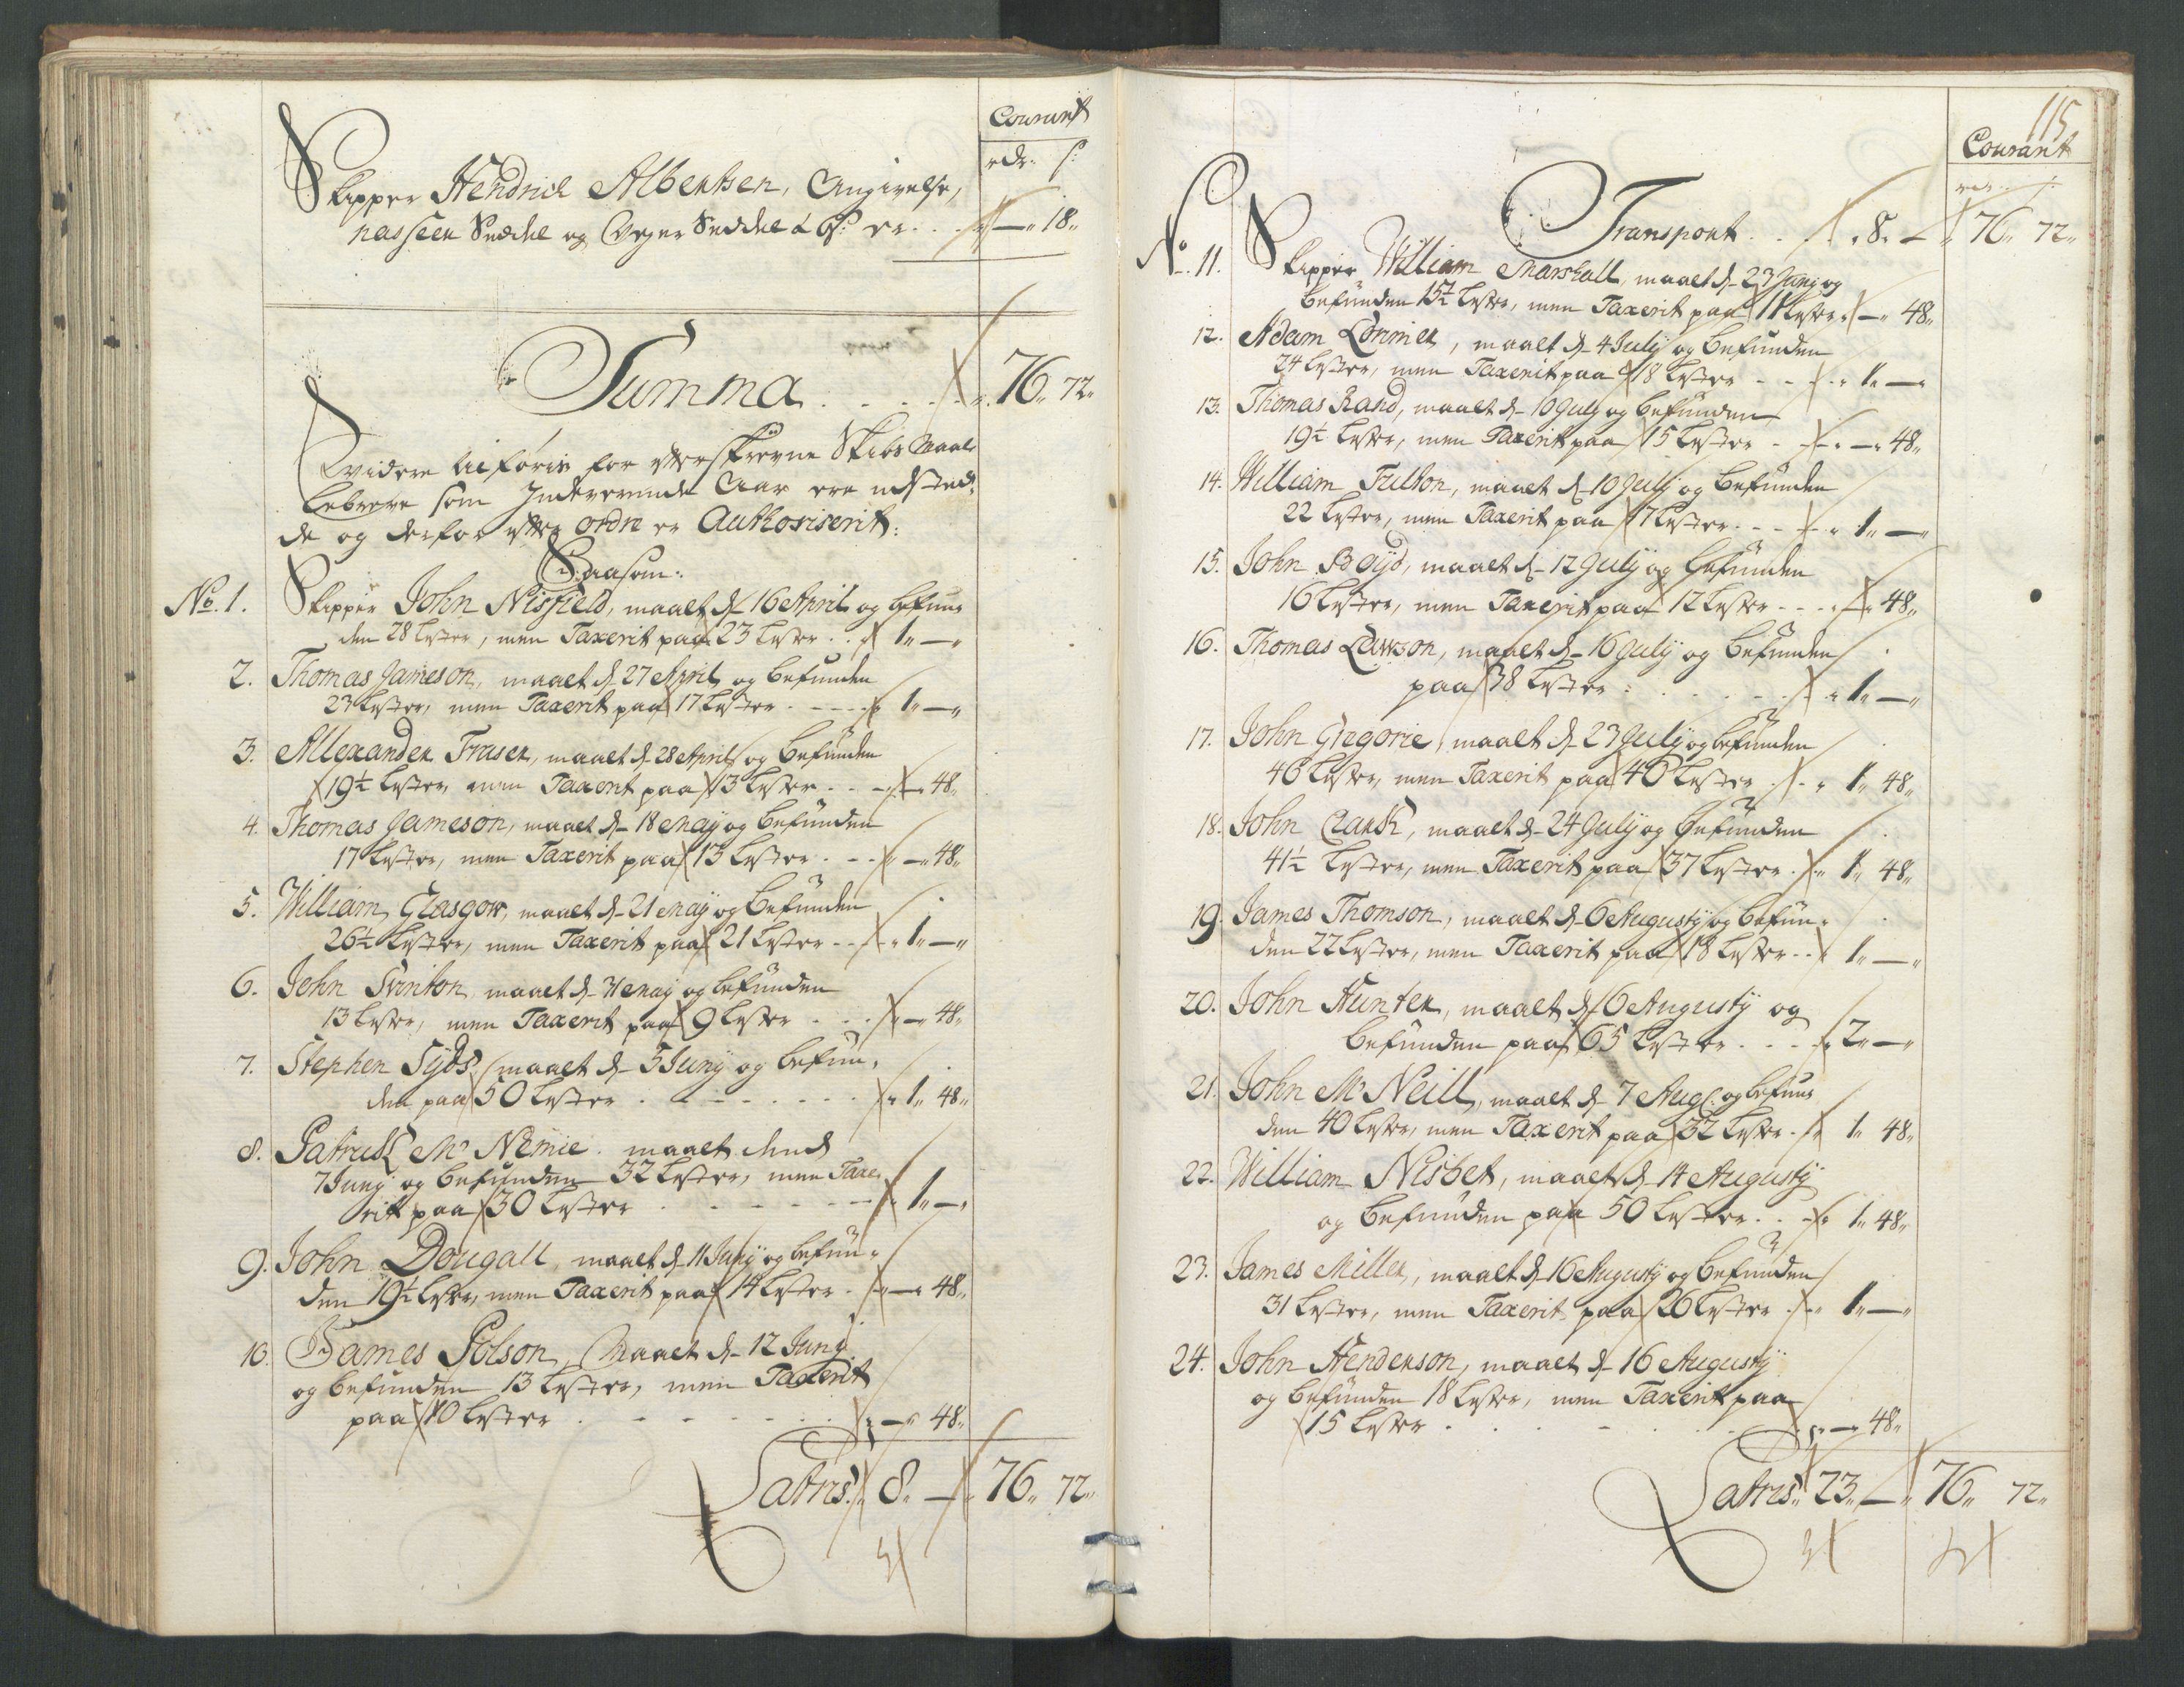 Courant
rdr. s:
Skipper Hendrich Albertsen, Angivelse,
passeer Seddel og Vejer Seddel á 6 s: er . . — 18,,
Summa . . . . . 76,, 72,,
Widere tilføris for efterskrevne Skibs Maale
lebreve som Indeverende Aar ere udsted-
de og derfor efter ordre er Authoriserit:
Saasom:
No. 1. Skipper John Nisfield, maalt d. 16 April og befun-
den 28 lester, men Taxerit paa 23 lester . . 1,, —,,
2. Thomas Jameson, maalt d. 27 April og befunden
23 lester, men Taxerit paa 17 lester . . . . 1,, —,,
3. Allexander Fraser, maalt d. 28 April og befunden
19½ lester men Taxerit paa 13 lester . . . — 48,,
4. Thomas Jameson, maalt d. 18 Maÿ og befunden
17 lester, men Taxerit paa 13 lester . . . —,, 48,,
5. William Glasgow, maalt d. 21 Maÿ og befunden
26½ lester, men Taxerit paa 21 lester . . . 1,, —,,
6. John Svinton maalt d. 31 Maÿ og befunden
13 lester, men Taxerit paa 9 lester . . . — 48,,
7. Stephen Syds, maalt d. 5 Junÿ og befun-
den paa 50 lester . . . . . . . 1,, 48,,
8. Patrick Mc Nemie maalt dend
7 Junÿ og befunden 32 lester, men Taxe-
rit paa 30 lester . . . . . . 1,, —,,
9. John Dougall, maalt d. 11 Junÿ og befun-
den 19½ lester, men Taxerit paa 14 lester . — 48,,
10. James Polson, Maalt d. 12 Junÿ
og befunden 13 lester, men Taxerit
paa 10 lester . . . . . . — 48,,
Latris. 8,, — 76,, 72,,
115
Courant
rdr. s:
Transport . . . 8,, — 76,, 72,,
No. 11. Skipper William Marshall, maalt d. 23 Junÿ og
befunden 15½ lester, men Taxerit paa 11 lester . — 48,,
12. Adam Lorimer, maalt d. 4 Julÿ og befunden
24 lester, men Taxerit paa 18 lester . . . 1,, —,,
13. Thomas Rand, maalt d. 10 Julÿ og befunden
19½ lester, men Taxerit paa 15 lester . . —,, 48,,
14. William Fulton, maalt d. 10 Julÿ og befunden
22 lester, men Taxerit paa 17 lester . . . 1,, —,,
15. John Boÿd, maalt d. 12 Julÿ og befunden
16 lester, men Taxerit paa 12 lester . . . — 48,,
16. Thomas Lawson, maalt d. 16 Julÿ og befunden
paa 38 lester . . . . . . 1,, —,,
17. John Gregorie, maalt d. 23 Julÿ og befunden
46 lester, men Taxerit paa 40 lester . . 1,, 48,,
18. John Clark, maalt d. 24 Julÿ og befunden
41½ lester, men Taxerit paa 37 lester . . 1,, 48,,
19. James Thomson, maalt d. 6 Augustÿ og befun-
den 22 lester, men Taxerit paa 18 lester . . 1,, —,,
20. John Hunter, maalt d. 6 Augustÿ og
befunden paa 65 lester . . . 2,, —,,
21. John Mc Neill, maalt d. 7 Aug. og befun-
den 40 lester, men Taxerit paa 32 lester . . 1,, 48,,
22. William Nisbet, maalt d. 14 Augustÿ
og befunden paa 50 lester . . 1,, 48,,
23. James Miller, maalt d. 16 Augustÿ og befunden
31 lester, men Taxerit paa 26 lester . . 1,, —,,
24. John Henderson, maalt d. 16 Augustÿ
og befunden 18 lester, men Taxerit paa
15 lester . . . . . . — 48,,
Latris. 23,, — 76,, 72,,